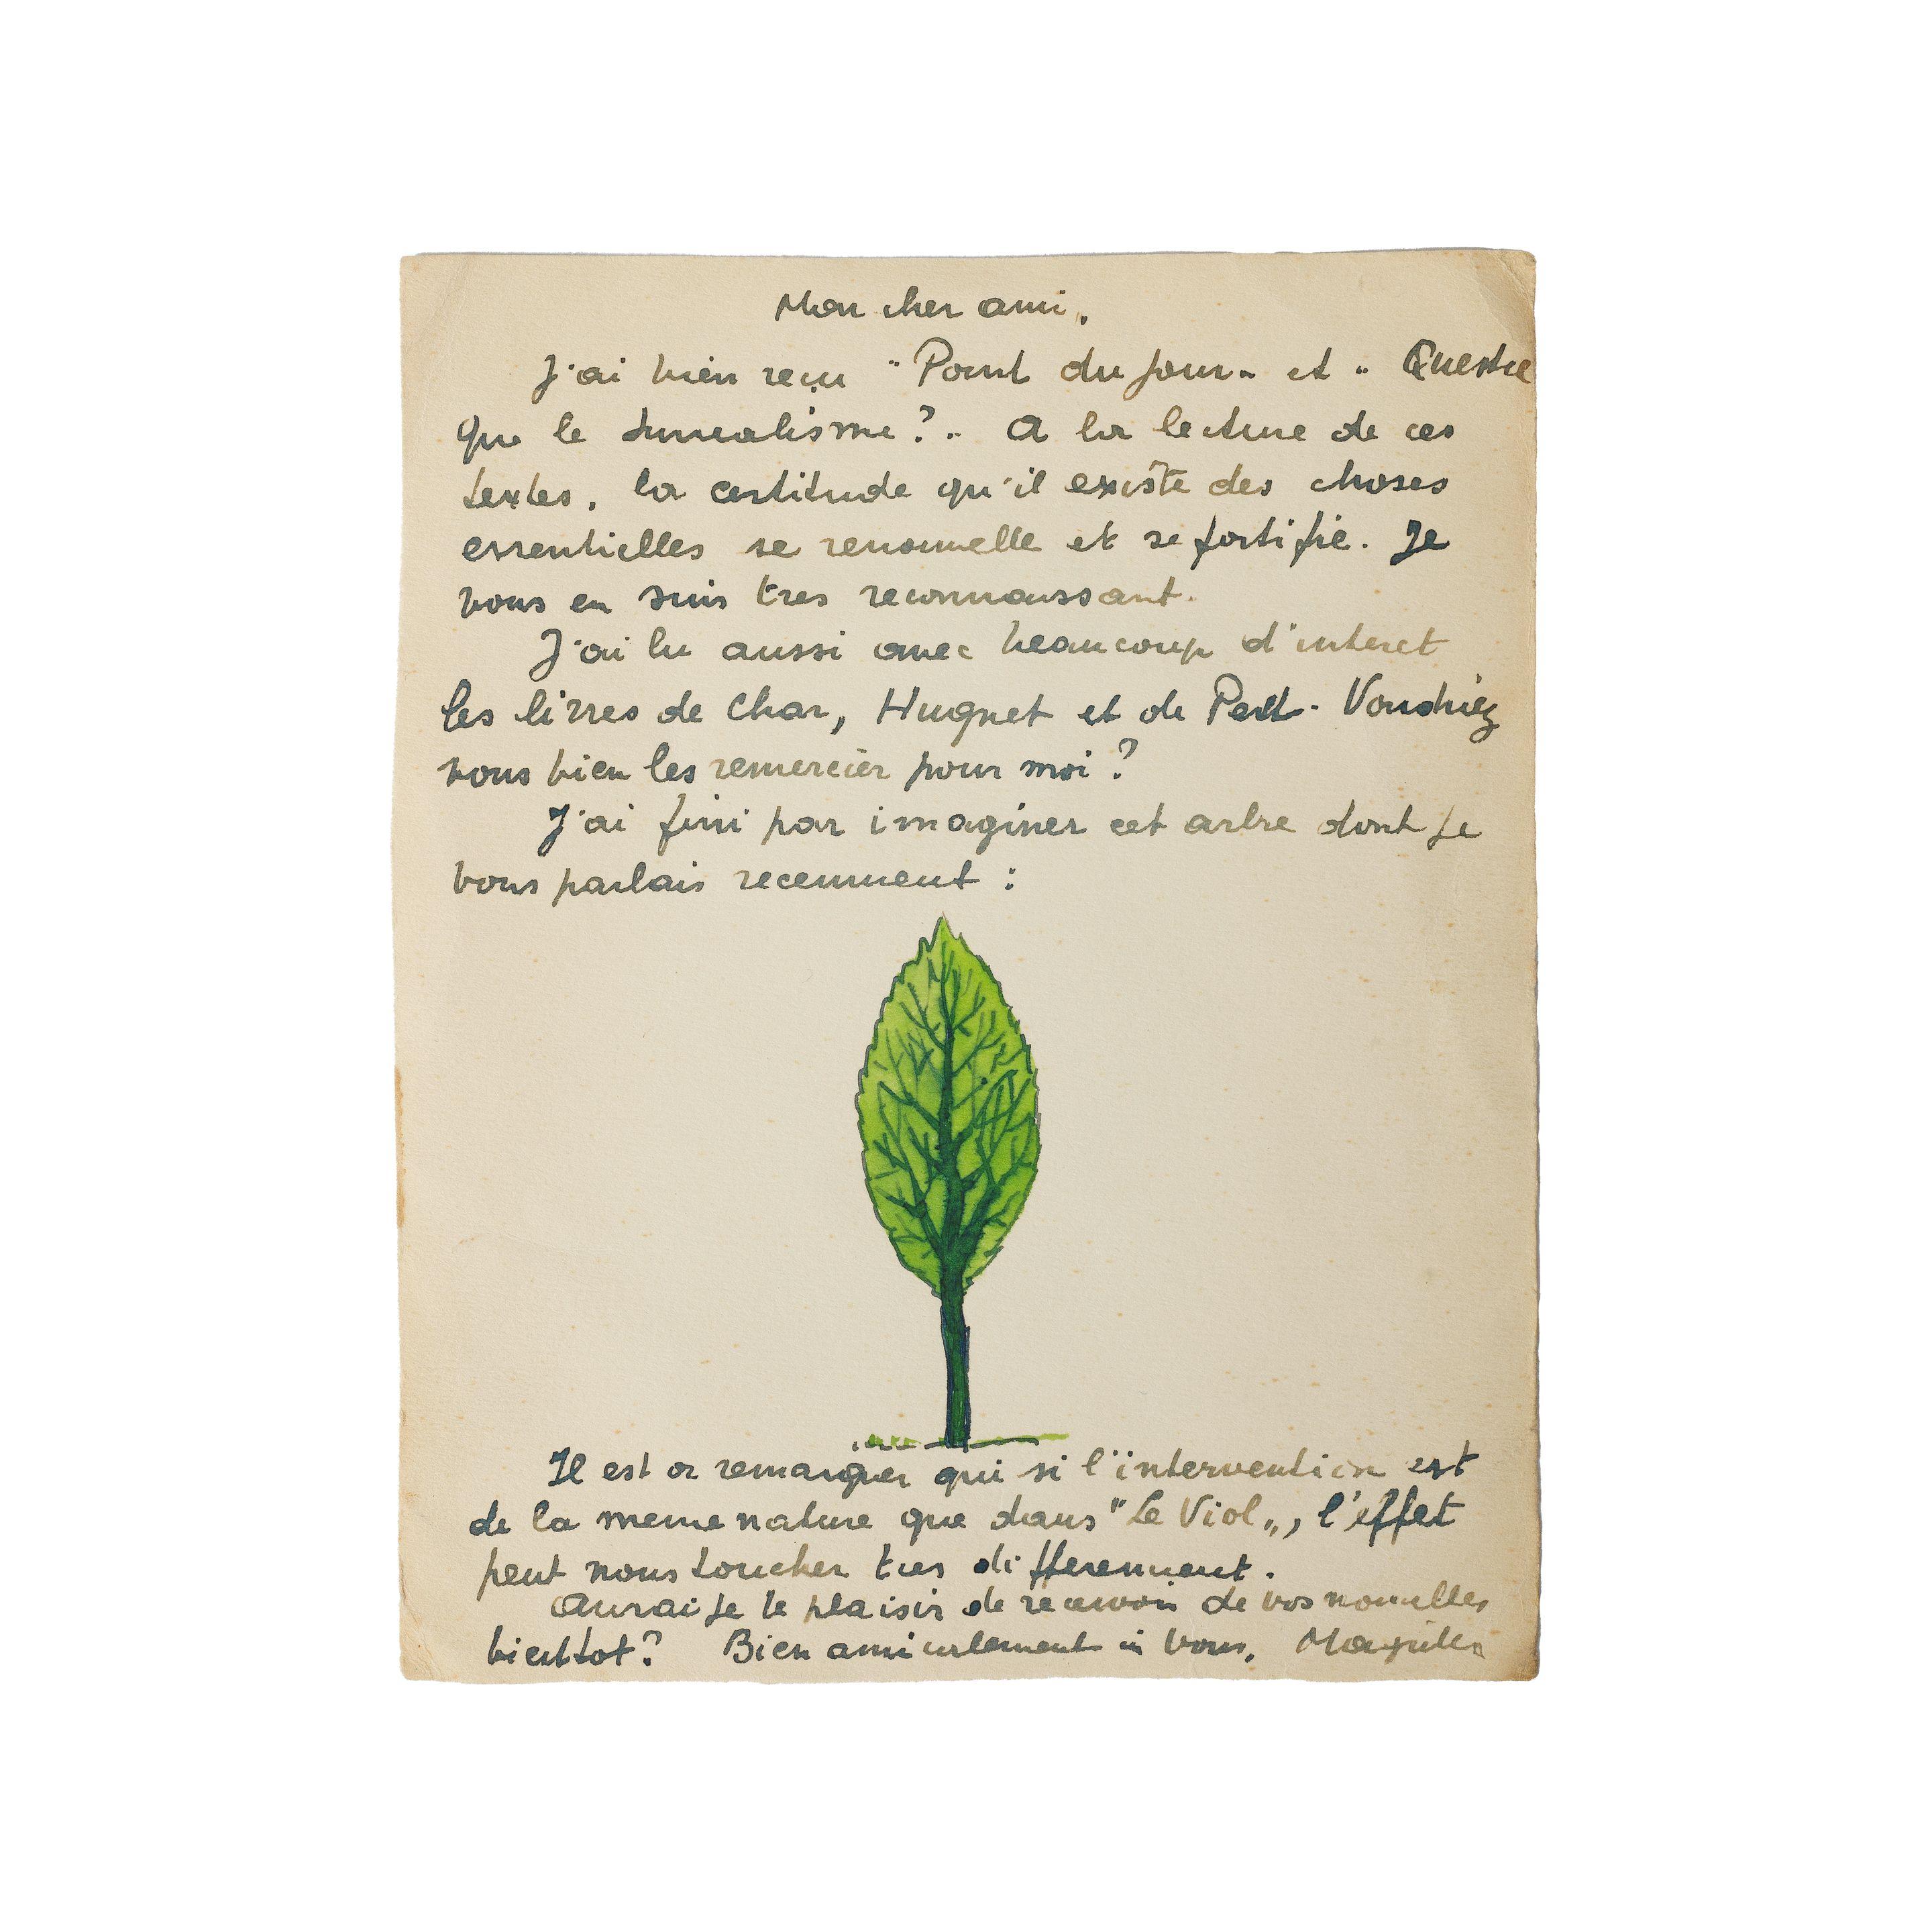 Mon cher ami,
J'ai bien reçu "Point du jour" et "Qu'est ce
que le surrealisme?" A la lecture de ces
textes, la certitude qu'il existe des choses
essentielles se renouvelle et se fortifie. Je
vous en suis tres reconnaissant.
J'ai lu aussi avec beaucoup d'interet
les livres de Char, Hugnet et de Peret. Voudriez
vous bien les remercier pour moi?
J'ai fini par imaginer cet arbre dont je
vous parlais recemment :
Il est a remarquer que si l'intervention est
de la meme nature que dans "Le Viol", l'effet
peut nous toucher tres differemment.
Aurai je le plaisir de recevoir de vos nouvelles
bientot? Bien amicalement à vous, Magritte